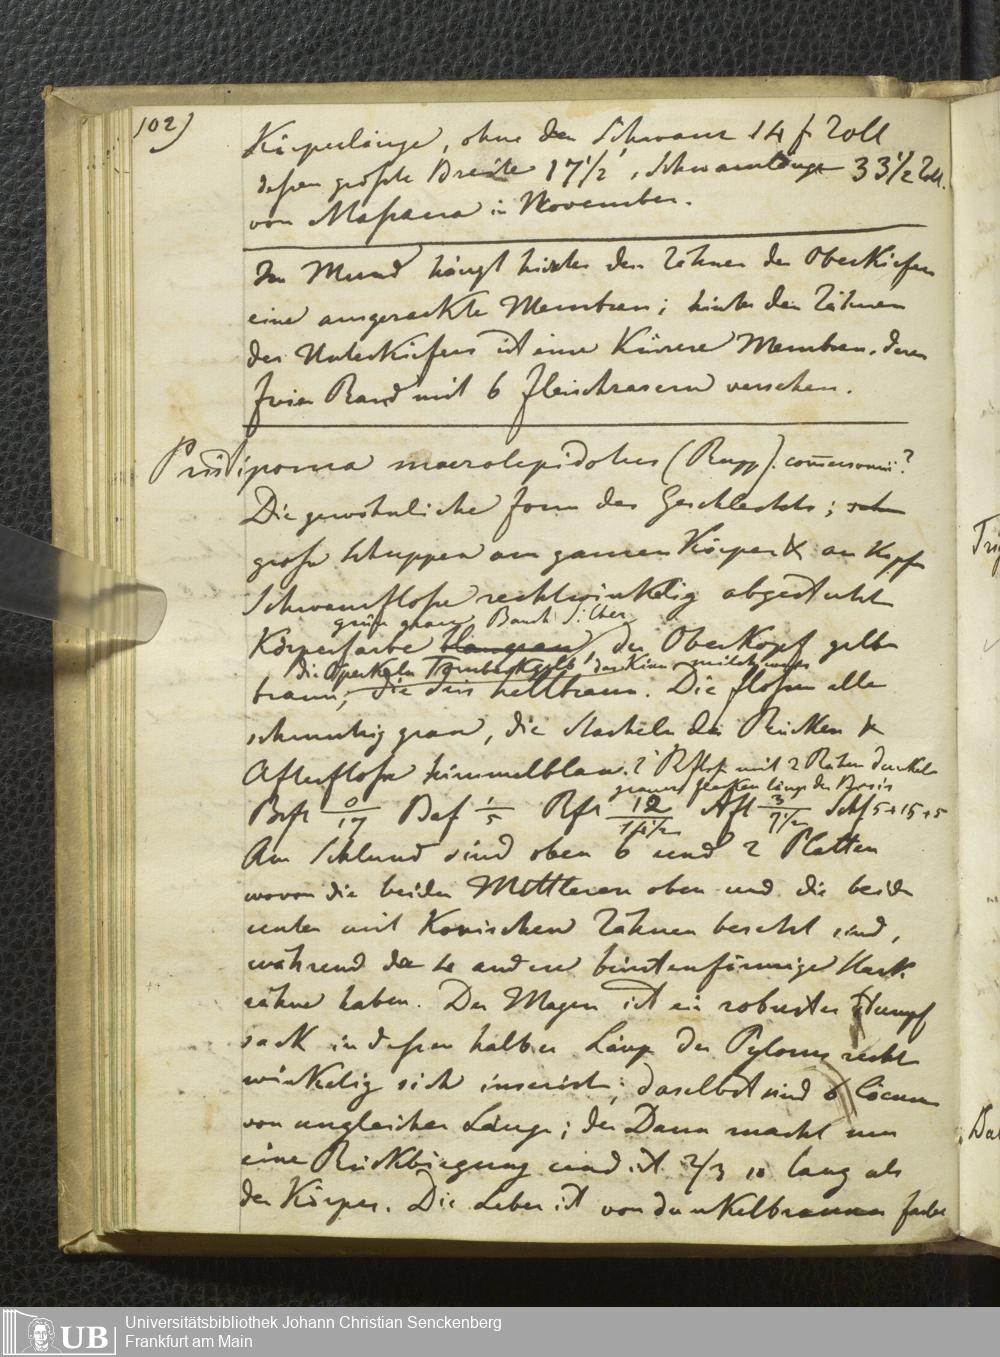 102)
Körperlänge, ohne den Schwanz 14 f Zoll
dessen größte Breite 17 1/2, Schwanzlänge 33 1/2 Zoll.
von Massaua in November.
Im Mund hängt hinter den Zähnen des Oberkiefers
eine ausgezackte Membran; hinter den Zähnen
des Unterkiefers ist eine Kürzere Membran, deren
freier Rand mit 6 fleischzasern versehen.
Pristipoma macrolepidotus (Rupp). commersonii?
Die gewöhnliche form des Geschlechts; sehr
große Schuppen am ganzen Körper & am Kopf
Schwanzflosse rechtwinkelig abgestutzt
grün grau Bauch Silber
Körperfarbe blaugrau, der Oberkopf gelb
die Operkeln Tombackgelb, das Kinn milchweiss
braun, die Iris hellbraun. Die flossen alle
schmutzig grau, die Stacheln der Rücken &
Afterflosse himmelblau. 2' Rflosse mit 2 Reihen dunkel
grauer flecken längs der Basis
Brfl 0/17 Baf 1/5 Rfl 12/14 1/2 Afl 3/7 1/2 Schf 5+15+5
Am Schlund sind oben 6 und 2 Platten
wovon die beiden Mittleren oben und die beiden
unten mit Konischen Zähnen besetzt sind,
während die 4 andere bürstenförmige Hack
zähne haben. Der Magen ist ein robuster Stumpf
sack in dessen halber Länge der Pylorus recht
winkelig sich inserirt; daselbst sind 6 Cöcum
von ungleicher Länge; der Darm macht nur
eine Rückbiegung und ist 2/3 so lang als
der Körper. Die Leber ist von dunkelbrauner farbe
Universitätsbibliothek Johann Christian Senckenberg
Frankfurt am Main
UB